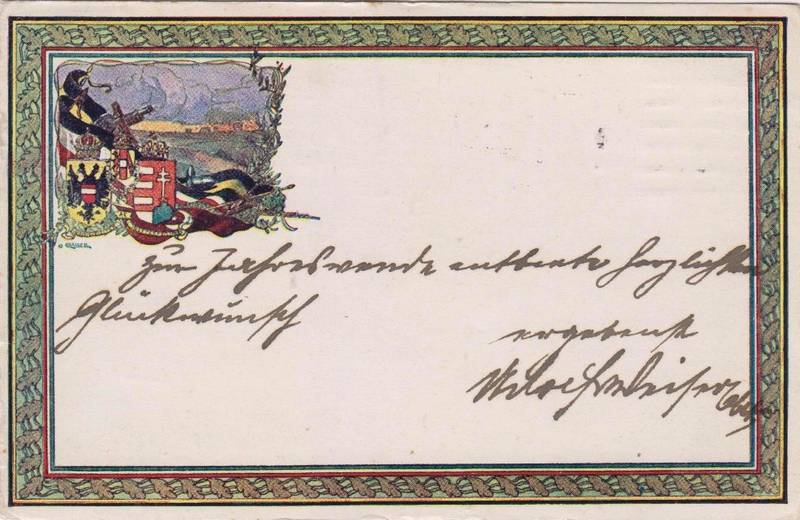 zur Jahreswende entbiete herzlichsten
Glückwunsch
ergebenst
Weiser